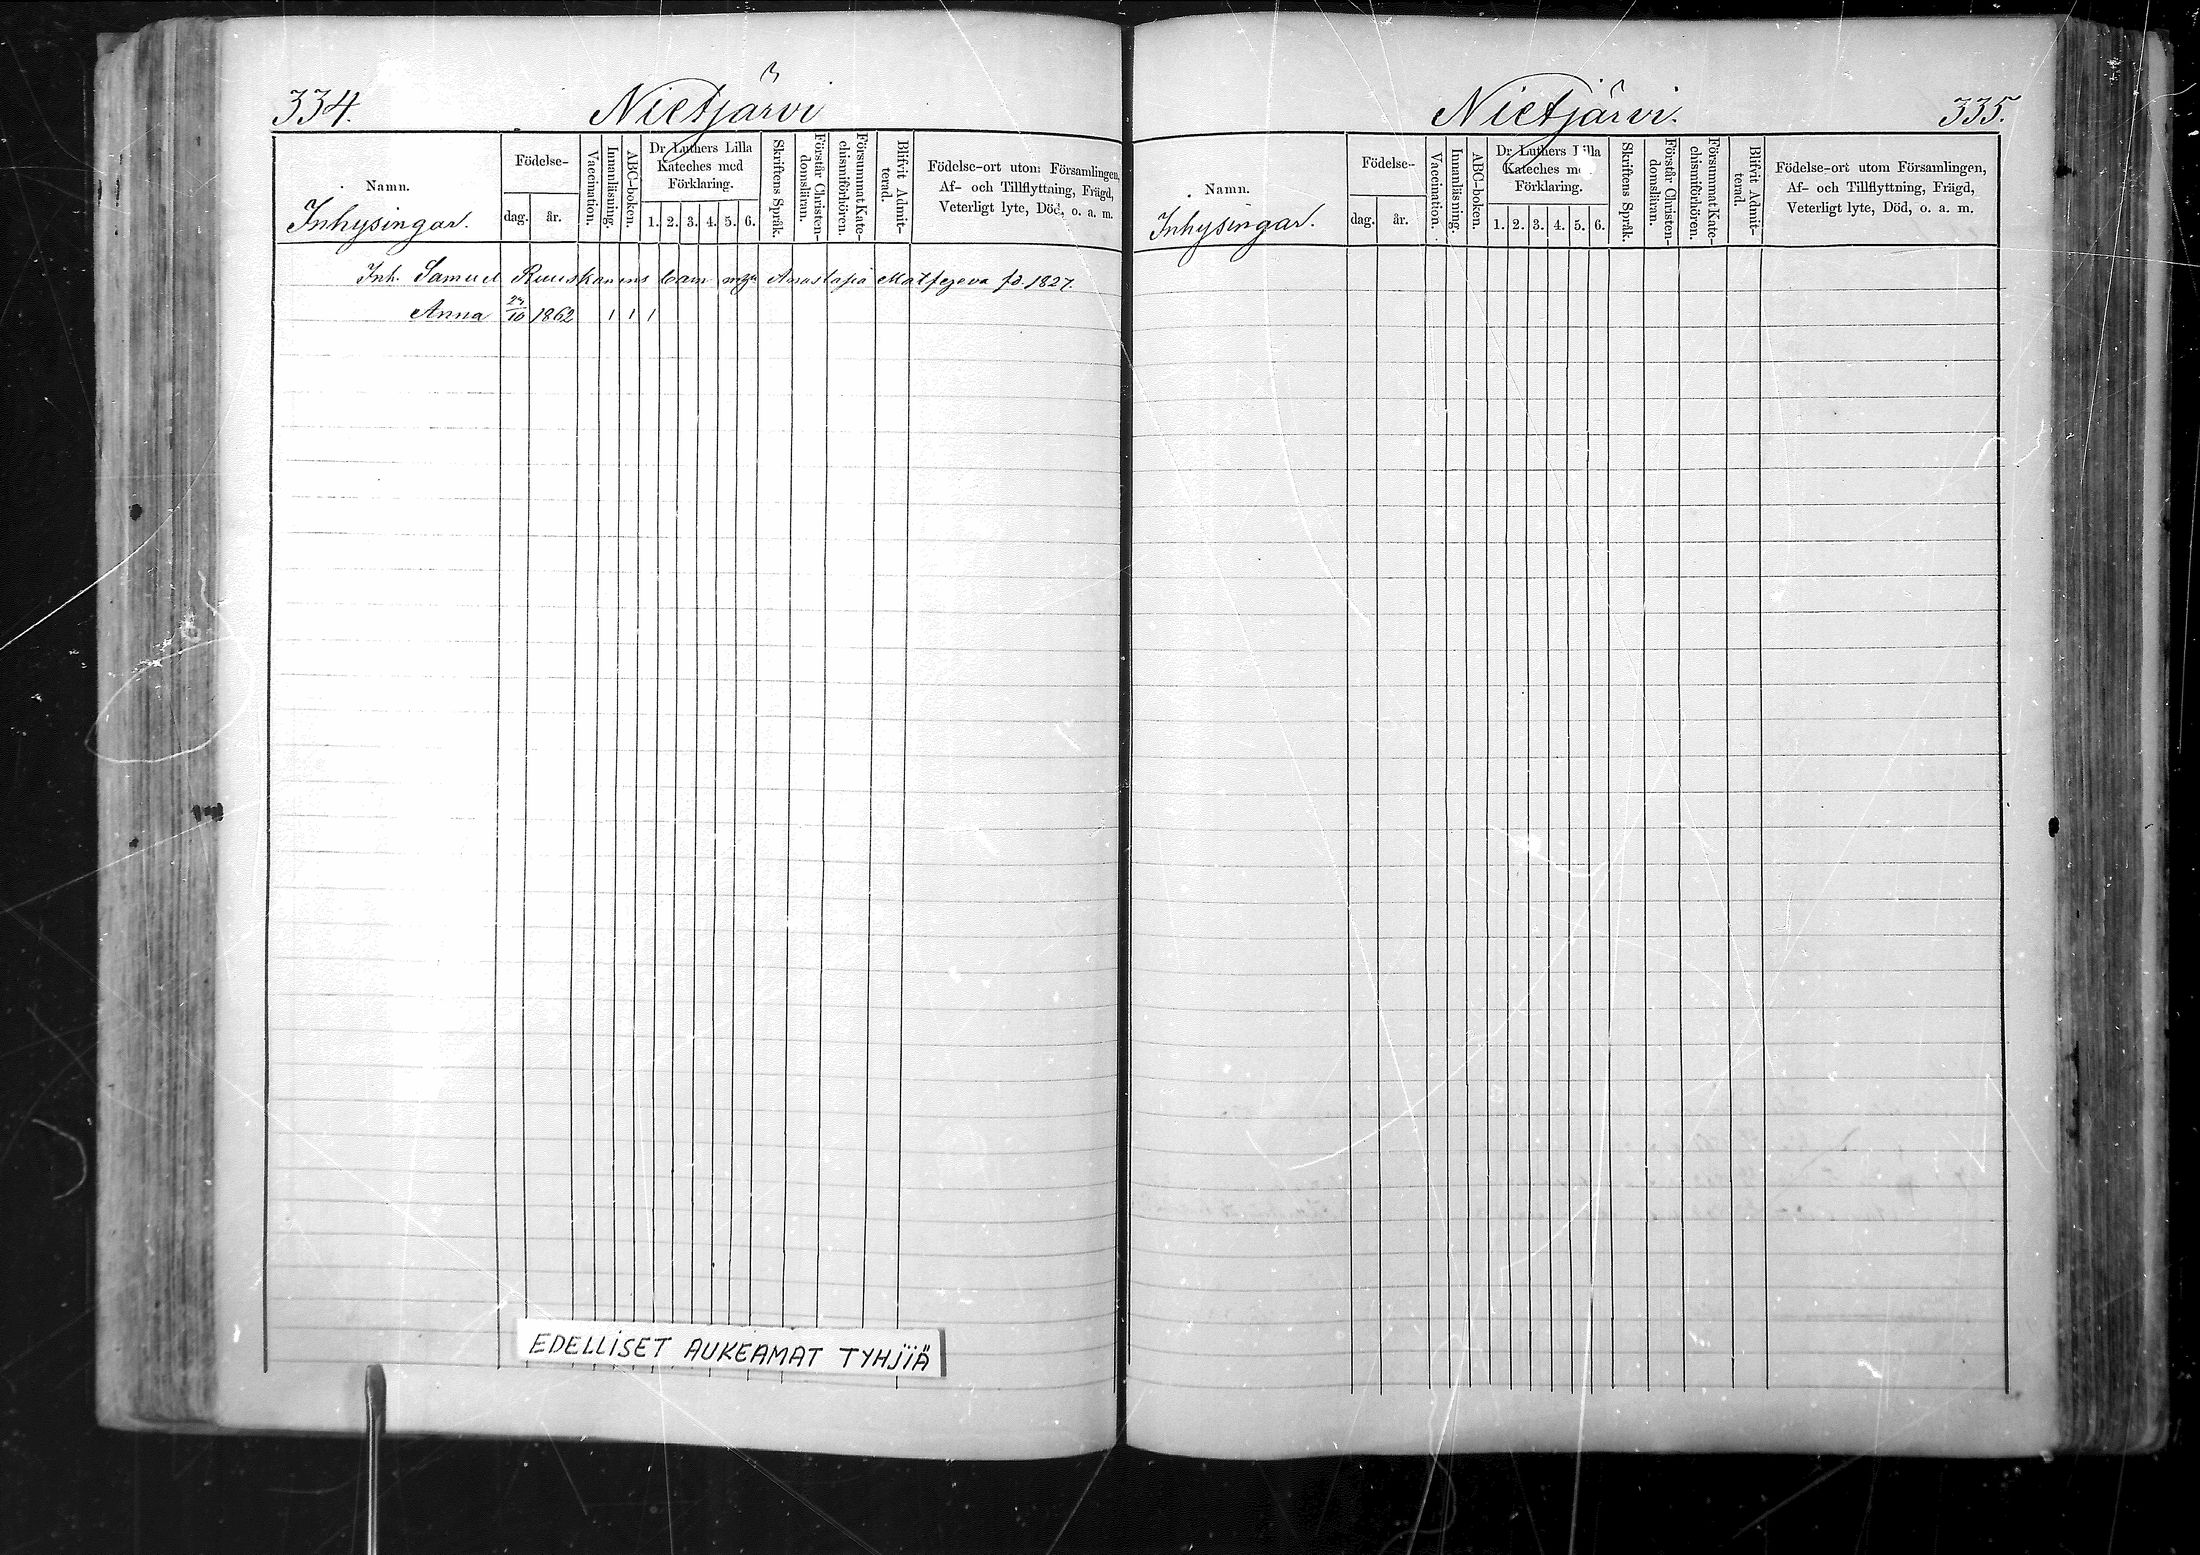 334.
Nietjärvi
Namn.
Inhysingar.
Födelse-
dag.
år.
Vaccination.
Innanläsning.
ABC-boken.
Dr Luthers Lilla
Kateches med
Förklaring.
1. 2. 3. 4. 5. 6.
Skriftens Språk.
Förstår Christen-
domsläran.
Försummat Kate-
chismiförhören.
Blifvit Admit-
terad.
Födelse-ort utom Församlingen,
Af- och Tillflyttning, Frägd,
Veterligt lyte, Död, o. a. m.
Inh. Samuel Ruuskanens barn Anastasia Matfejeva fd. 1827.
Anna 10 1862 1 1 1
EDELLISET AUKEAMAT TYHJIÄ
Nietjärvi.
335.
Namn.
Inhysingar.
Födelse-
dag.
år.
Vaccination.
Innanläsning.
ABC-boken.
Dr Luthers Lilla
Kateches med
Förklaring.
1. 2. 3. 4. 5. 6.
Skriftens Språk.
Förstår Christen-
domsläran.
Försummat Kate-
chismiförhören.
Blifvit Admit-
terad.
Födelse-ort utom Församlingen,
Af- och Tillflyttning, Frägd,
Veterligt lyte, Död, o. a. m.